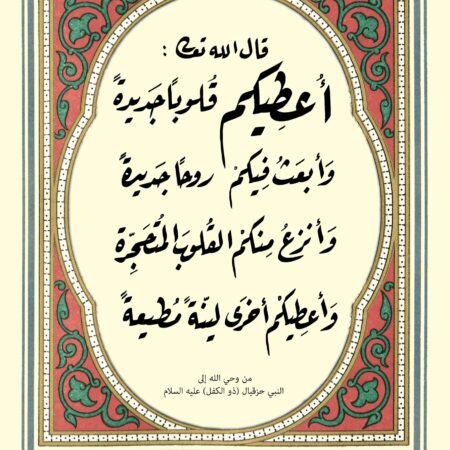 قال الله تعالى :
أُعطِيكم قُلوبًا جَديدةً
وَأبعَثُ فِيكمْ روحًا جَديدةً
وَأنزِعُ مِنكمْ القُلوبَ المُتَحَجِّرة
وَأعطِيكمْ أخرَى ليِّنةً مُطيعةً
من وحي الله إلى
النبي حزقيال (ذو الكفل) عليه السلام